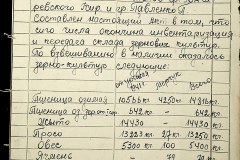 ревского Кир и гр. Павленко В.
Составлен настоящий Акт в том, что
сего числа окончена инвентаризация
и передача склада зерновых культур.
По взвешиванию в наличии оказалось
зерно-культур следующие:
мерзлые Всего
Пшеница озимая 10566 кг 4250 кг 14816 кг.
Пшеница 642 кг - 642 кг.
Жыто 14430 - 14430 кг.
Просо 13223 кг 13250 кг
Овес 5300 кг 100 5400 кг
Ячмень